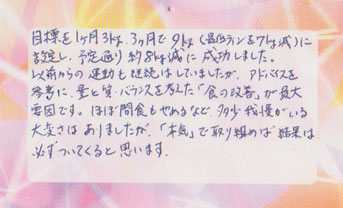 目標を1ヶ月3kg、3ヶ月で9kg(最低ラインを7kg減)に
設定し、予定通り約8kg減に成功しました。
以前からの運動も継続はしていましたが、アドバイスを
参考に、量と質、バランスを考えた「食の改善」が最大
要因です。ほぼ間食もやめるなど、多少我慢がいる
大変さはありましたが、「本気」で取り組めば結果は
必ずついてくると思います。